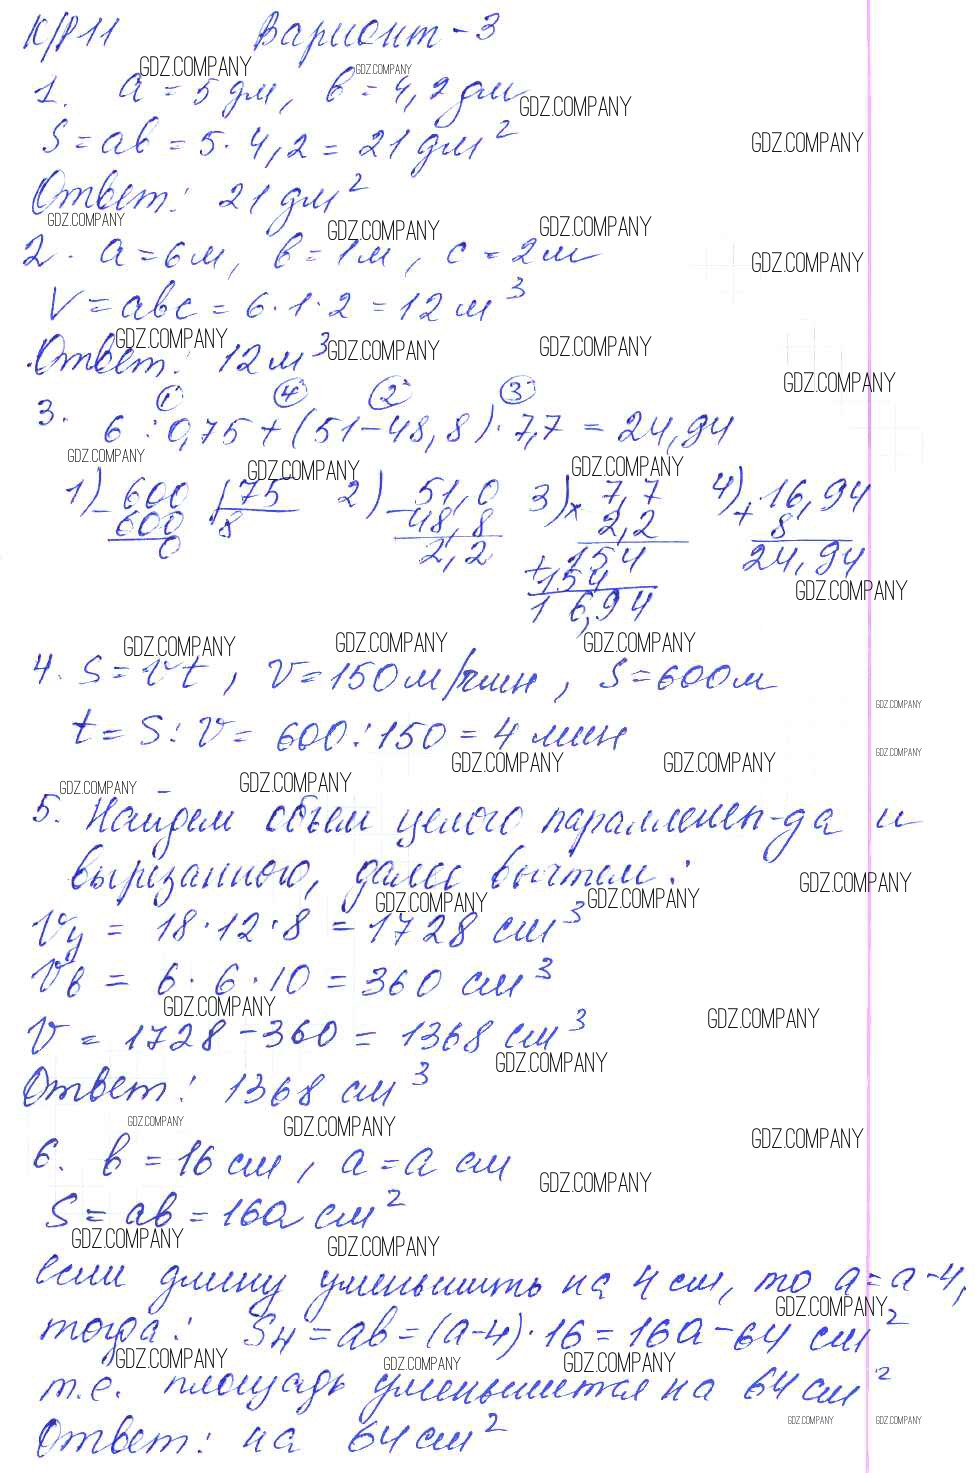 К/Р 11 Вариант - 3
GDZ.COMPANY GDZ.COMPANY
1. a = 5 дм, b = 4,2 дм
GDZ.COMPANY
S = ab = 5 · 4,2 = 21 дм²
GDZ.COMPANY
Ответ: 21 дм²
GDZ.COMPANY GDZ.COMPANY GDZ.COMPANY
2. a = 6 м, b = 1 м, c = 2 м
GDZ.COMPANY
V = abc = 6 · 1 · 2 = 12 м³
GDZ.COMPANY GDZ.COMPANY GDZ.COMPANY
Ответ: 12 м³
GDZ.COMPANY
1 4 2 3
3. 6 : 0,75 + (51 - 48,8) · 7,7 = 24,94
GDZ.COMPANY GDZ.COMPANY GDZ.COMPANY
1) - 600 | 75 2) - 51,0 3) x 7,7 4) + 16,94
600 8 48,8 2,2 8
0 2,2 + 154 24,94
154
GDZ.COMPANY
16,94
GDZ.COMPANY GDZ.COMPANY GDZ.COMPANY
4. S = vt, v = 150 м/мин, S = 600 м
GDZ.COMPANY
t = S : v = 600 : 150 = 4 мин
GDZ.COMPANY GDZ.COMPANY GDZ.COMPANY
GDZ.COMPANY GDZ.COMPANY
5. Найдем объем целого параллелеп-да и
вырезанного, далее вычтем:
GDZ.COMPANY GDZ.COMPANY GDZ.COMPANY
Vц = 18 · 12 · 8 = 1728 см³
Vв = 6 · 6 · 10 = 360 см³
GDZ.COMPANY GDZ.COMPANY
V = 1728 - 360 = 1368 см³
GDZ.COMPANY
Ответ: 1368 см³
GDZ.COMPANY GDZ.COMPANY GDZ.COMPANY
6. b = 16 см, a = a см
GDZ.COMPANY
S = ab = 16a см²
GDZ.COMPANY GDZ.COMPANY
если длину уменьшить на 4 см, то a = a - 4,
GDZ.COMPANY
тогда: Sн = ab = (a - 4) · 16 = 16a - 64 см²
GDZ.COMPANY GDZ.COMPANY GDZ.COMPANY
т.е. площадь уменьшится на 64 см²
GDZ.COMPANY GDZ.COMPANY
Ответ: на 64 см²